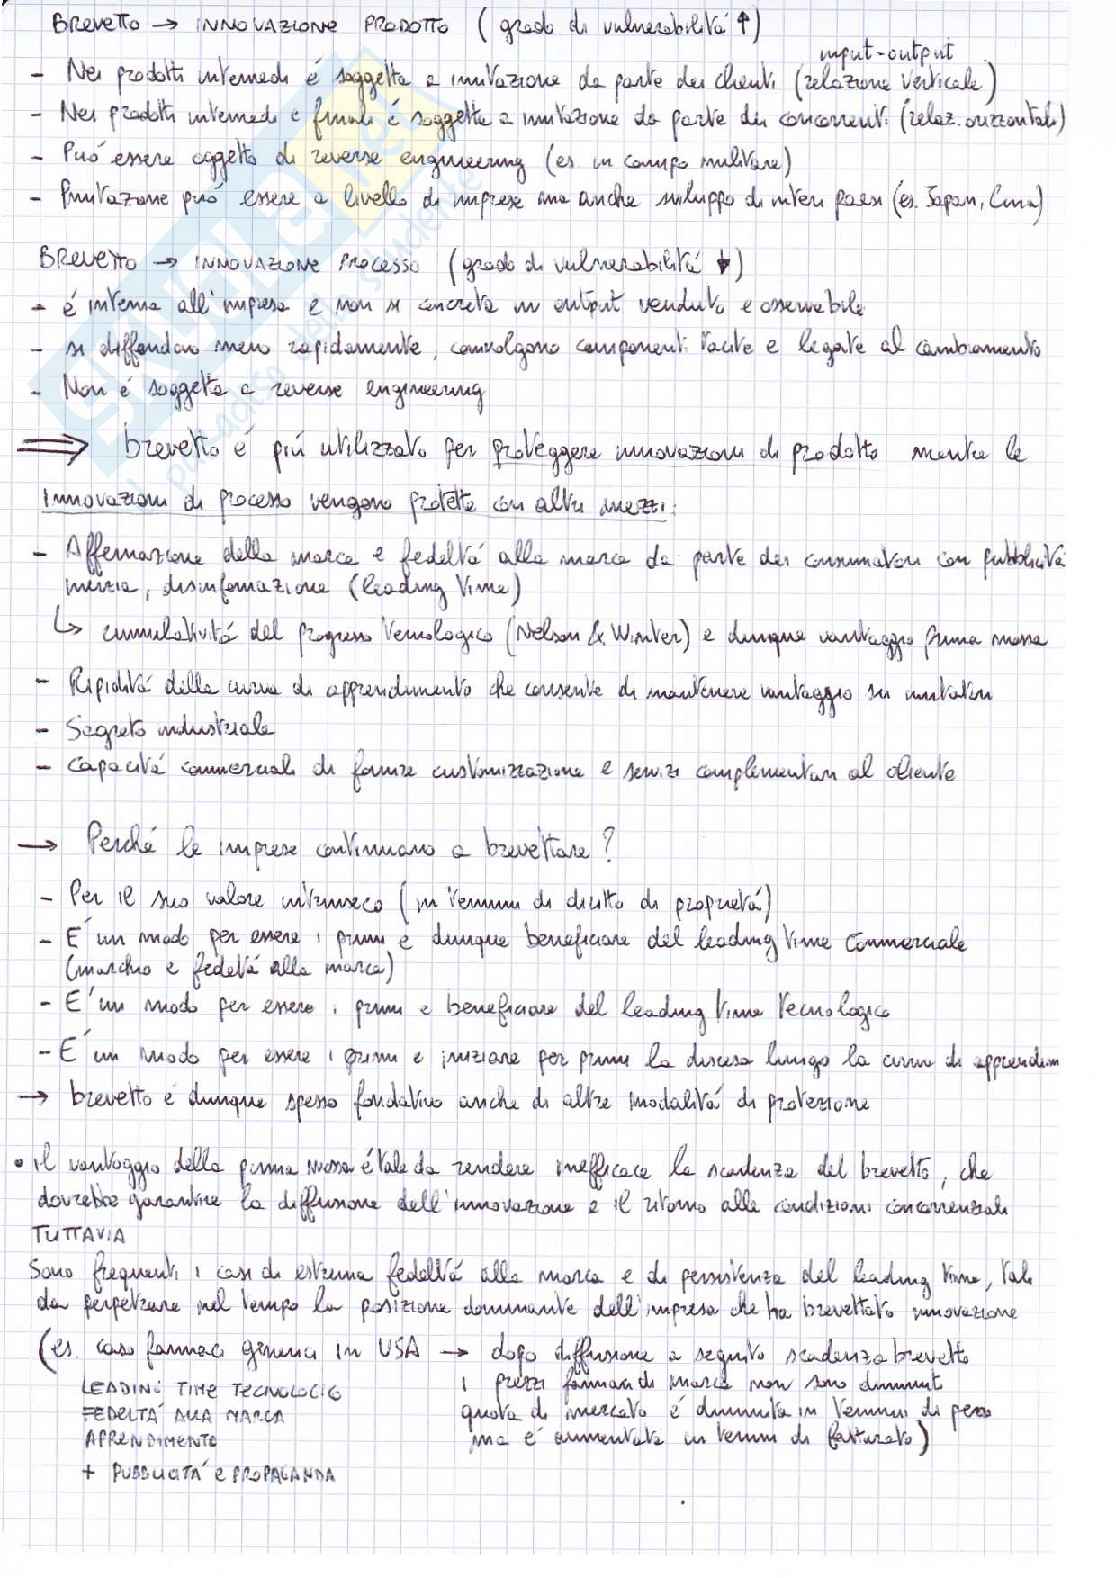 BREVETTO → INNOVAZIONE PRODOTTO (grado di vulnerabilitá ↑)
input-output
- Nei prodotti intermedi é soggetta a imitazione da parte dei clienti (relazione verticale)
- Nei prodotti intermedi e finali é soggetta a imitazione da parte dei concorrenti (relaz. orizzontale)
- Puó essere oggetto di reverse engineering (es in campo militare)
- Imitazione puó essere a livello di imprese ma anche sviluppo di interi paesi (es. Japan, Cina)
BREVETTO → INNOVAZIONE PROCESSO (grado di vulnerabilitá ↓)
- é interna all'impresa e non si concreta in output venduto e osservabile
- si diffondono meno rapidamente, coinvolgono componenti tacite e legate al cambiamento
- Non é soggetta a reverse engineering
⇒ brevetto é piú utilizzato per proteggere innovazioni di prodotto mentre le
innovazioni di processo vengono protette con altri mezzi:
- Affermazione della marca e fedeltá alla marca da parte dei consumatori con pubblicitá
inerzia, disinformazione (leading time)
↳ cumulativitá del progresso tecnologico (Nelson & Winter) e dunque vantaggio prima mossa
- Ripiditá della curva di apprendimento che consente di mantenere vantaggio su imitatori
- Segreto industriale
- Capacitá commerciali di fornire customizzazione e servizi complementari al cliente
→ Perché le imprese continuano a brevettare?
- Per il suo valore intrinseco (in termini di diritto di proprietá)
- E' un modo per essere i primi e dunque beneficiare del leading time commerciale
(marchio e fedeltá alla marca)
- E' un modo per essere i primi e beneficiare del leading time tecnologico
- E' un modo per essere i primi e iniziare per primi la discesa lungo la curva di apprendim
→ brevetto é dunque spesso fondativo anche di altre modalitá di protezione
• il vantaggio della prima mossa é tale da rendere inefficace la scadenza del brevetto, che
dovrebbe garantire la diffusione dell'innovazione e il ritorno alle condizioni concorrenziali
TUTTAVIA
Sono frequenti i casi di estrema fedeltá alla marca e di persistenza del leading time, tali
da perpetrare nel tempo la posizione dominante dell'impresa che ha brevettato innovazione
(es. caso farmaci generici in USA → dopo diffusione a seguito scadenza brevetto
LEADING TIME TECNOLOGIO i prezzi farmaci di marca non sono diminuiti
FEDELTÁ ALLA MARCA quota di mercato é diminuita in termini di pezzi
APRENDIMENTO ma é aumentata in termini di fatturato)
+ PUBBLICITÁ e PROPAGANDA